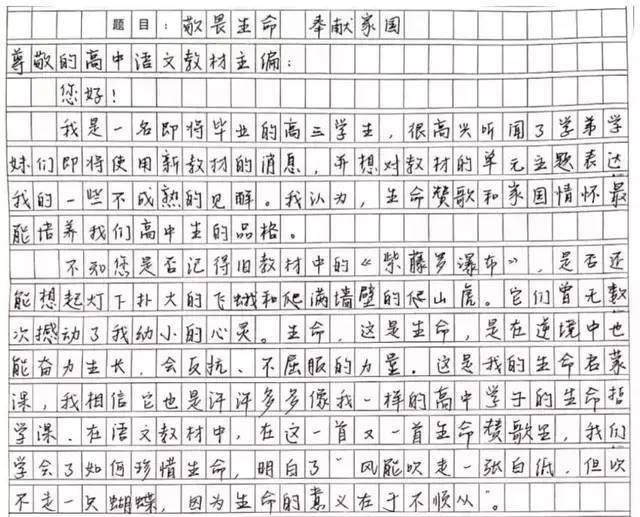 题目：敬畏生命 奉献家国
尊敬的高中语文教材主编：
您好！
我是一名即将毕业的高三学生，很高兴听闻了学弟学
妹们即将使用新教材的消息，并想对教材的单元主题表达
我的一些不成熟的见解。我认为，生命赞歌和家国情怀最
能培养我们高中生的品格。
不知您是否记得旧教材中的《紫藤萝瀑布》，是否还
能想起灯下扑火的飞蛾和爬满墙壁的爬山虎。它们曾无数
次撼动了我幼小的心灵。生命，这是生命，是在逆境中也
能奋力生长，会反抗、不屈服的力量。这是我的生命启蒙
课，我相信它也是许许多多像我一样的高中学子的生命哲
学课。在语文教材中，在这一首又一首生命赞歌里，我们
学会了如何珍惜生命，明白了“风能吹走一张白纸，但吹
不走一只蝴蝶，因为生命的意义在于不顺从”。